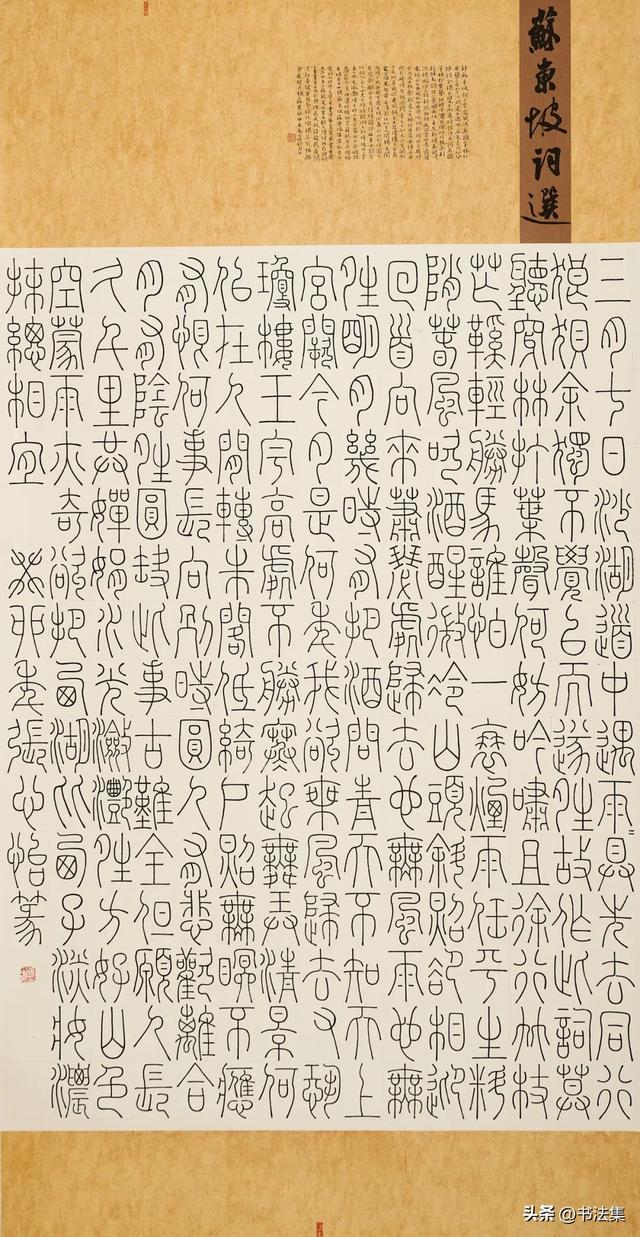 蘇東坡詞選
三月七日沙湖道中遇雨〻具先去同行
狼狽余獨不覺已而遂晴故作此詞莫
聽穿林打葉聲何妨吟嘯且徐行竹杖
芒鞋輕勝馬誰怕一蓑煙雨任平生料
峭春風吹酒醒微冷山頭斜照卻相迎
回首向來蕭瑟處歸去也無風雨也無
晴明月幾時有把酒問青天不知天上
宮闕今夕是何年我欲乘風歸去又恐
瓊樓玉宇高處不勝寒起舞弄清景何
似在人間轉朱閣低綺戶照無眠不應
有恨何事長向別時圓人有悲歡離合
月有陰晴圓缺此事古難全但願人長
久千里共嬋娟水光瀲灩晴方好山色
空蒙雨亦奇欲把西湖比西子淡妝濃
抹總相宜 癸卯年張心怡篆
头条 @书法集